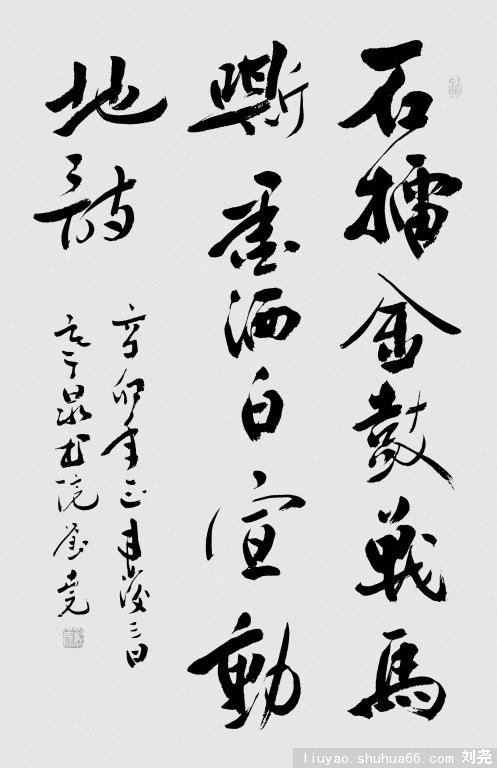 石擂金鼓戰馬
嘶墨洒白宣動
地詩
辛卯年正月後三日
书院刘尧
liuyao.shuhua66.com 刘尧